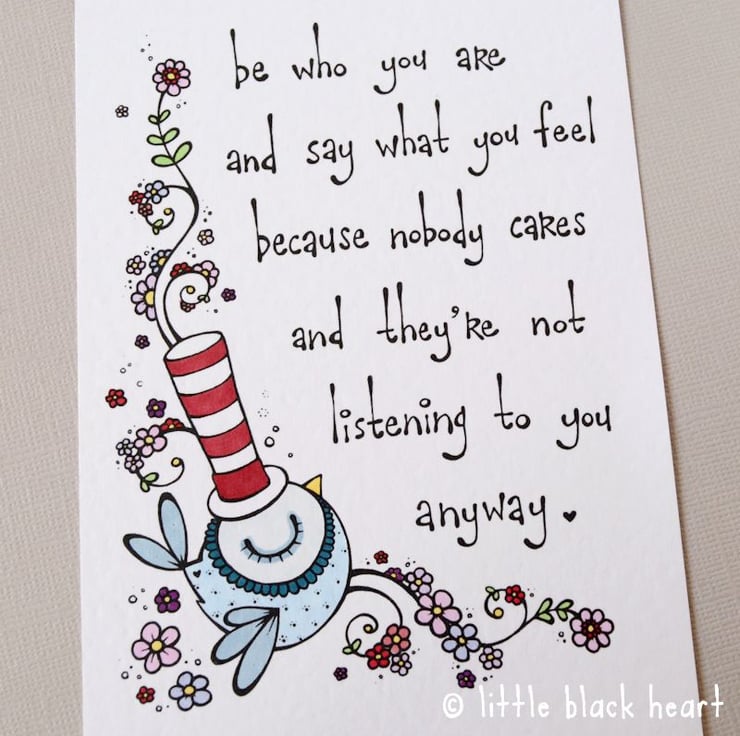 be who you are
and say what you feel
because nobody cares
and they're not
listening to you
anyway.
© little black heart